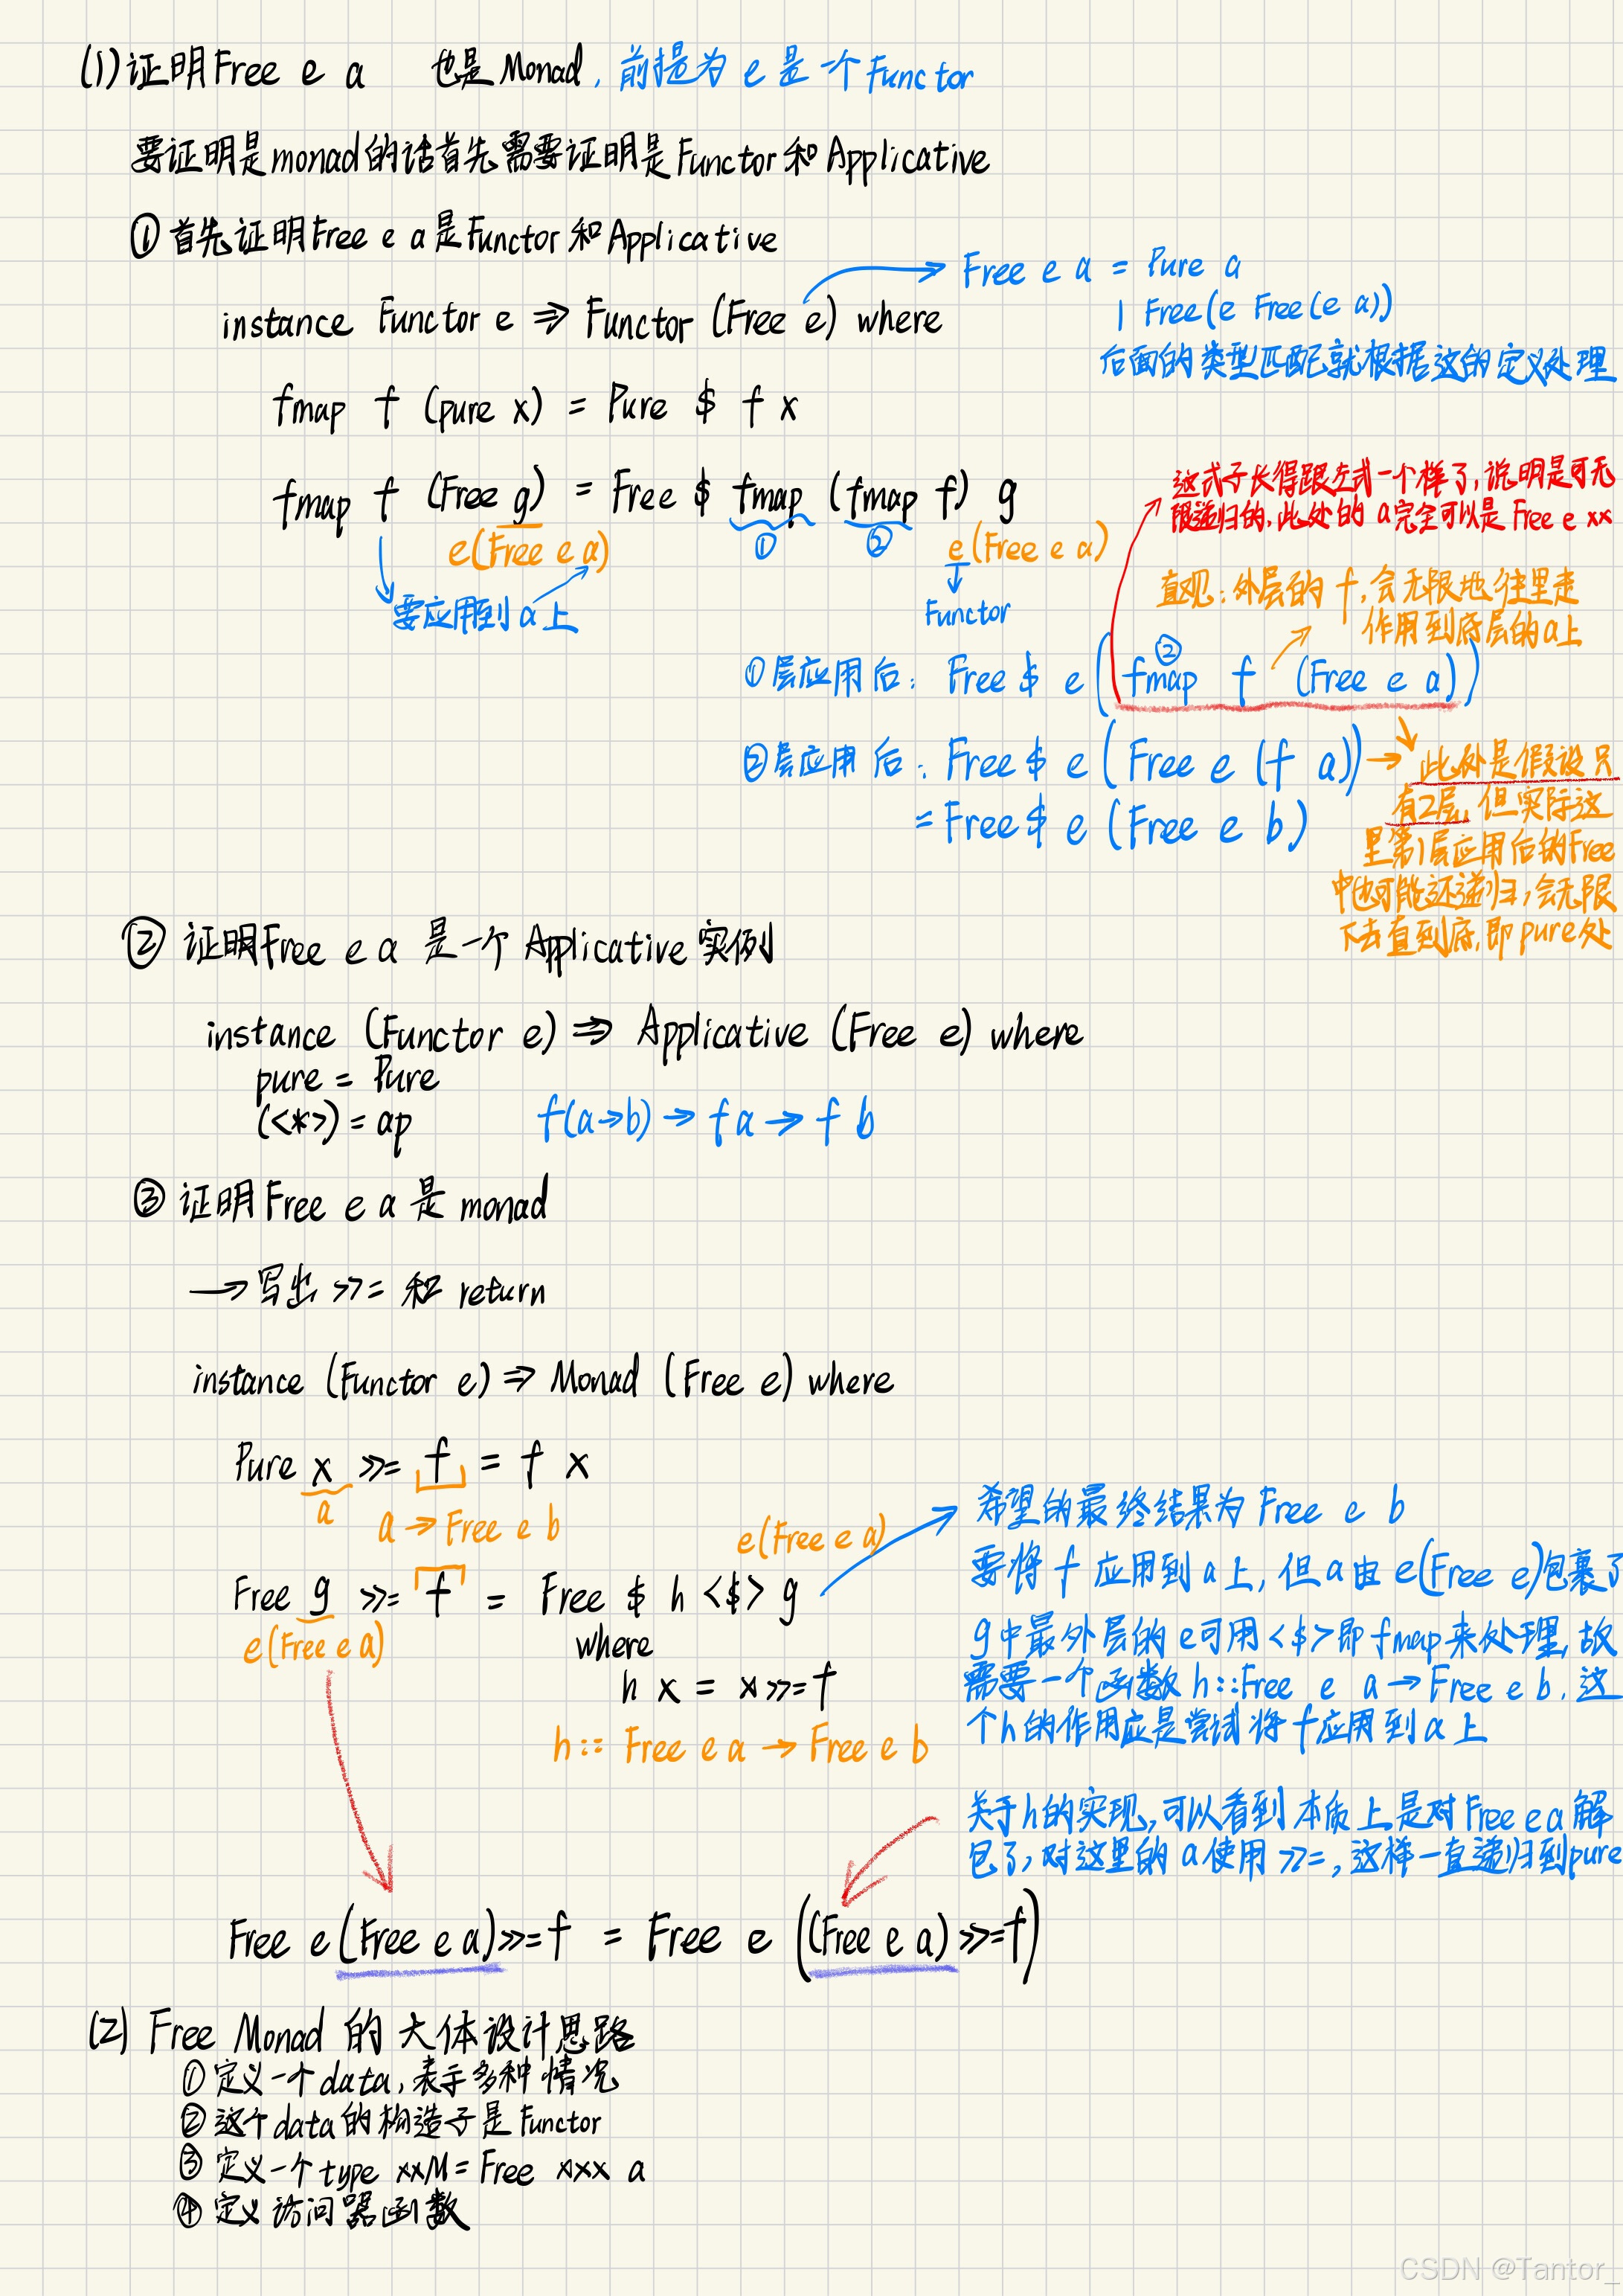 (1)证明Free e a 也是Monad, 前提为 e 是一个Functor
要证明是monad的话首先需要证明是Functor和Applicative
① 首先证明Free e a是Functor和Applicative
Free e a = Pure a
| Free(e Free(e a))
后面的类型匹配就根据这的定义处理
instance Functor e => Functor (Free e) where
fmap f (pure x) = Pure $ f x
fmap f (Free g) = Free $ fmap (fmap f) g
e(Free e a)
① ②
e(Free e a)
要应用到a上
Functor
这式子长得跟左式一个样了,说明是可无
限递归的,此处的 a完全可以是 Free e xx
直观:外层的 f,会无限地往里走
作用到底层的a上
②
①层应用后: Free $ e(fmap f (Free e a))
②层应用后: Free $ e(Free e (f a))
= Free $ e (Free e b)
此处是假设只
有2层,但实际这
里第1层应用后的Free
中也可能还递归,会无限
下去直到底,即pure处
② 证明Free e a 是一个 Applicative 实例
instance (Functor e) => Applicative (Free e) where
pure = Pure
(<*>) = ap f(a→b) → f a → f b
③ 证明Free e a 是 monad
→ 写出 >>= 和 return
instance (Functor e) => Monad (Free e) where
Pure x >>= f = f x
a
a → Free e b
e(Free e a)
Free g >>= f = Free $ h <$> g
e(Free e a)
where
h x = x >>= f
h :: Free e a → Free e b
希望的最终结果为 Free e b
要将 f 应用到a上,但a由 e(Free e)包裹了
g中最外层的 e可用<$>即fmap来处理,故
需要一个函数 h::Free e a → Free e b.这
个h的作用应是尝试将 f应用到a上
关于h的实现,可以看到本质上是对Free e a 解
包了,对这里的 a使用 >>=,这样一直递归到pure
Free e(Free e a) >>= f = Free e ((Free e a) >>= f)
(2) Free Monad 的大体设计思路
① 定义一个data,表示多种情况
② 这个data的构造子是 Functor
③ 定义一个type xxM = Free xxx a
④ 定义访问器函数
CSDN @Tantor_